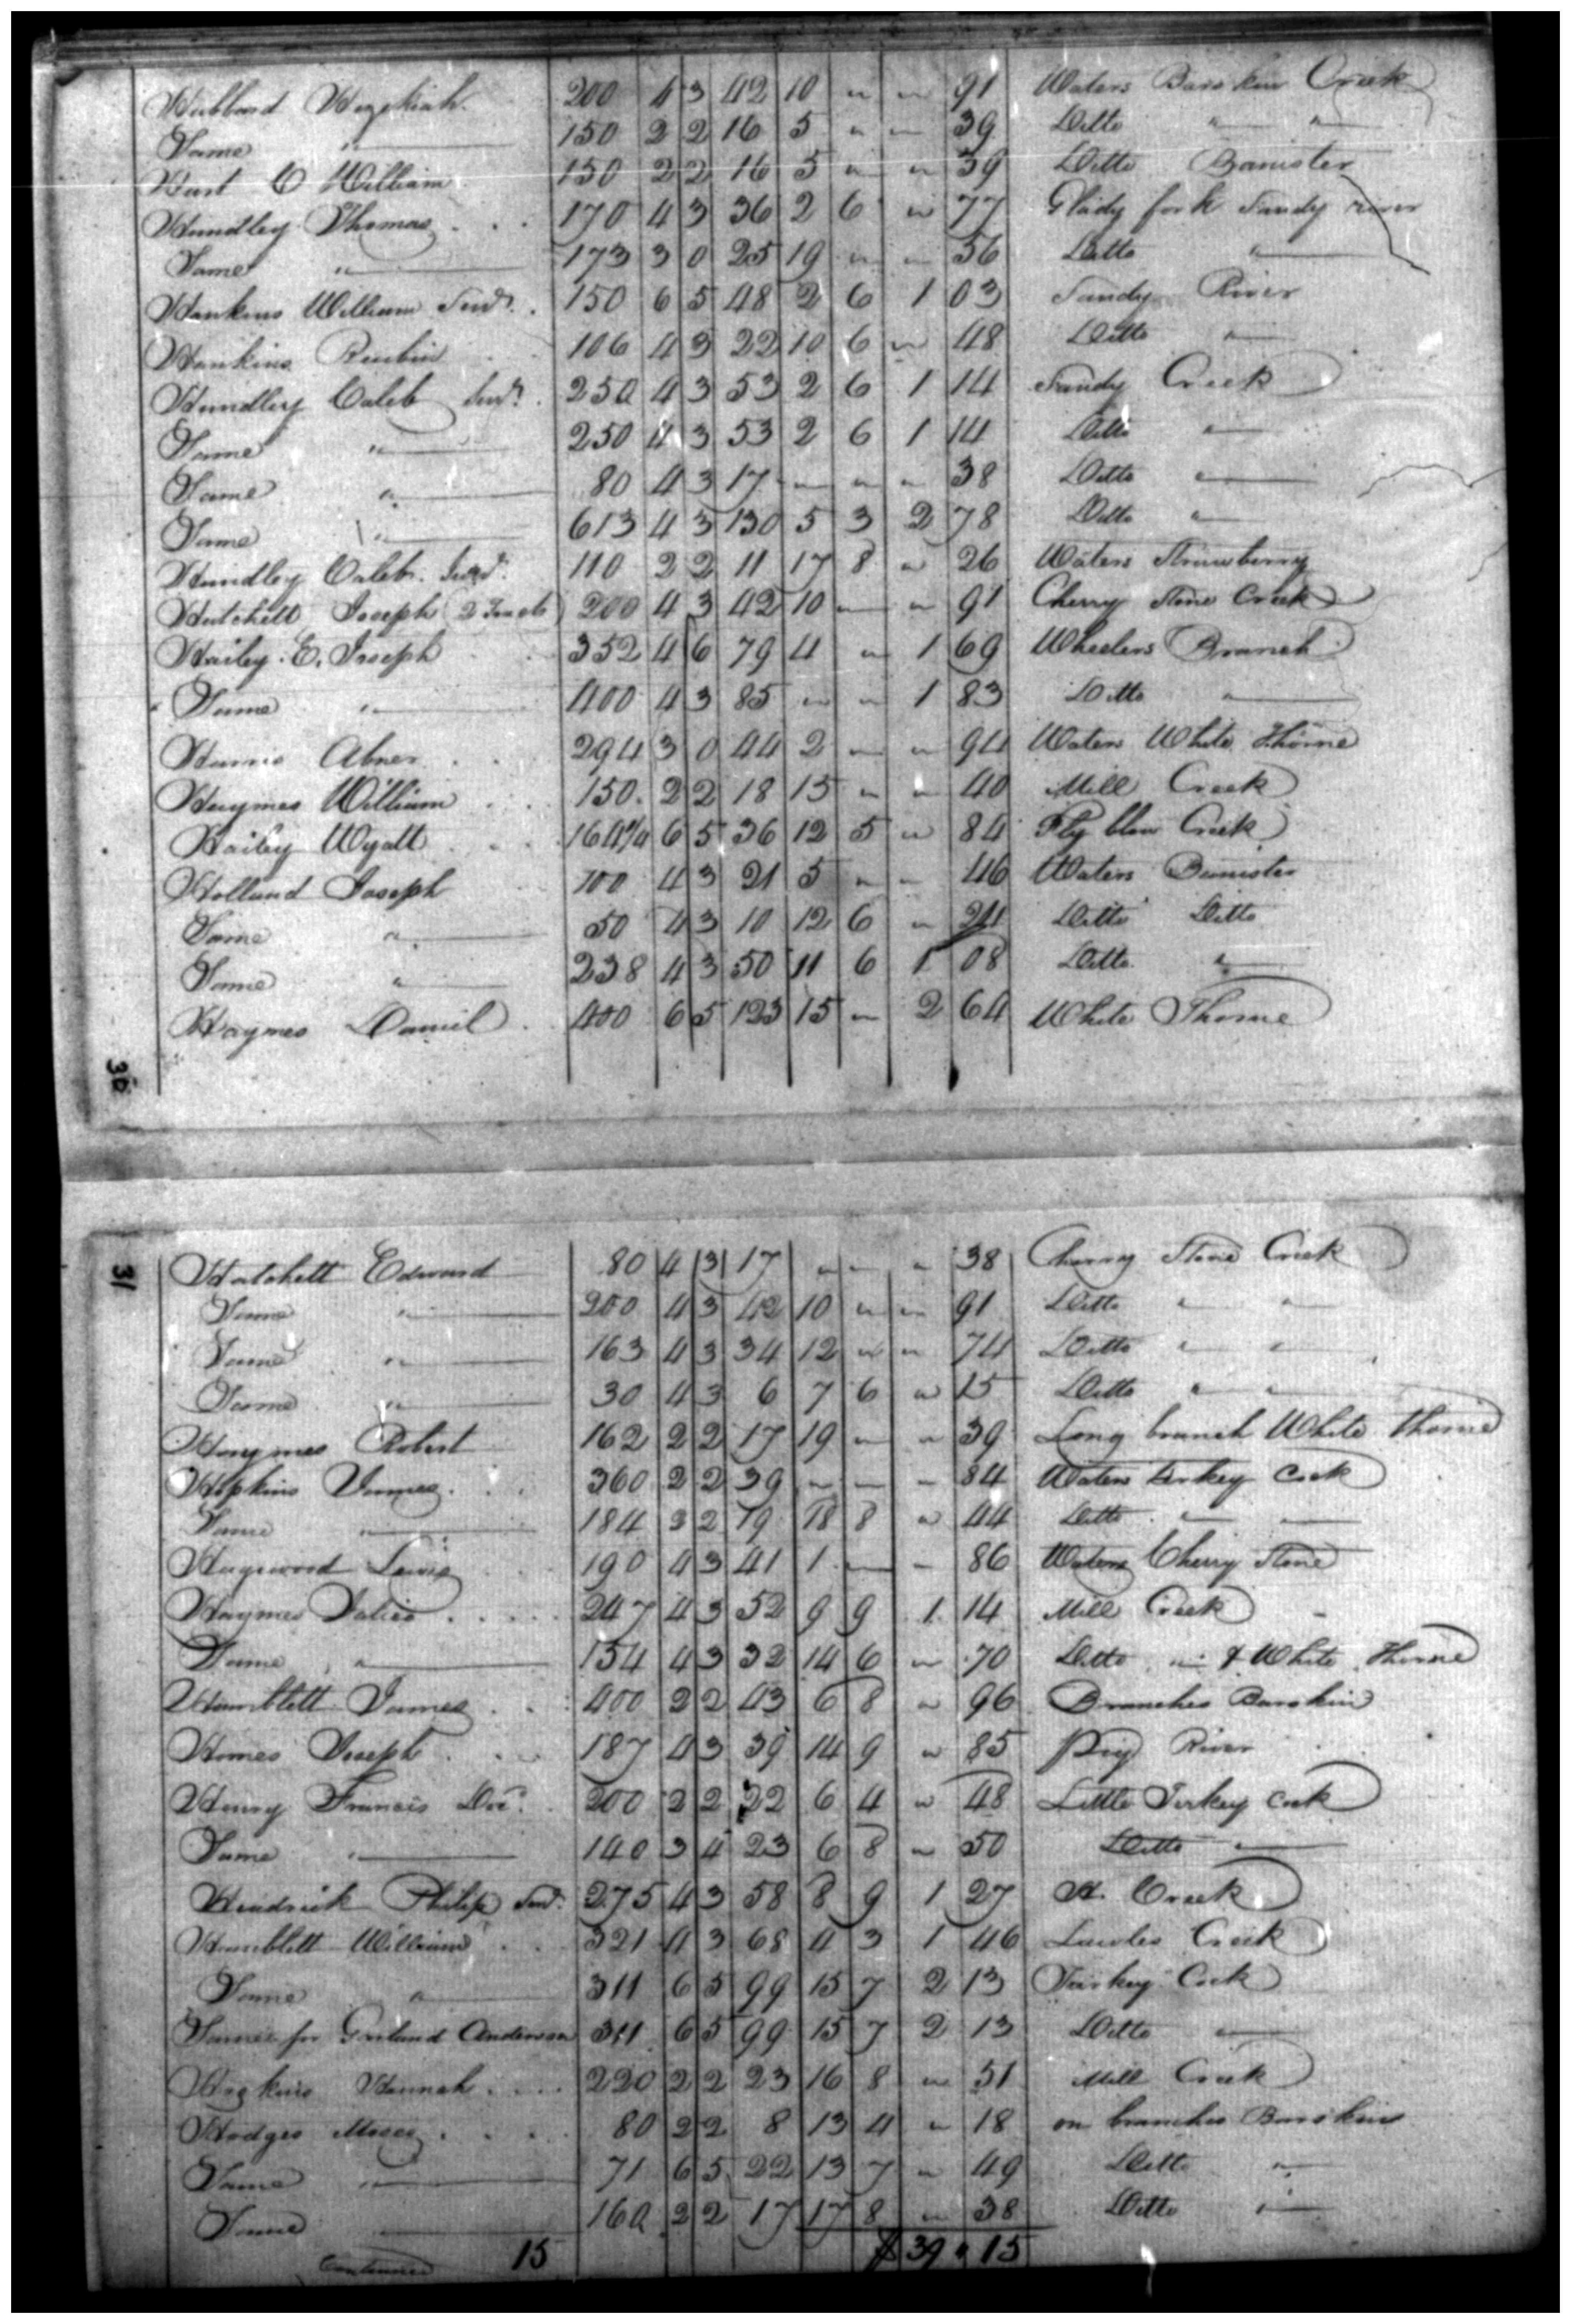 Hubbard Hezekiah 200 4 3 42 10 " " 91 Waters Barskin Creek
Same " 150 2 2 16 5 " " 39 Ditto " "
Hart C William 150 2 2 16 5 " " 39 Ditto Banister
Hundley Thomas 170 4 3 36 2 6 " 77 Glady fork Sandy river
Same " 173 3 0 25 19 " " 56 Ditto "
Hankins William Senr. 150 6 5 48 2 6 1 03 Sandy River
Hankins Reubin 106 4 3 22 10 6 " 48 Ditto "
Hundley Caleb Senr. 250 4 3 53 2 6 1 14 Sandy Creek
Same " 250 4 3 53 2 6 1 14 Ditto "
Same " 80 4 3 17 " " " 38 Ditto "
Same " 613 4 3 130 5 3 2 78 Ditto "
Hundley Caleb 110 2 2 11 17 8 " 26 Waters Strawberry
Hatchett Joseph (2 Tracts) 200 4 3 42 10 " " 91 Cherry Stone Creek
Hailey E. Joseph 352 4 6 79 4 " 1 69 Wheelers Branch
Same " 400 4 3 85 " " 1 83 Ditto
Harris Abner 294 3 0 44 2 " " 94 Waters White Thorne
Haymes William 150 2 2 18 15 " " 40 Mill Creek
Hailey Wyatt 164 1/4 6 5 36 12 5 " 84 Fly blow Creek
Holland Joseph 100 4 3 21 5 " " 46 Waters Banister
Same " 50 4 3 10 12 6 " 24 Ditto Ditto
Same " 238 4 3 50 11 6 1 08 Ditto "
Haymes Daniel 400 6 5 123 15 " 2 64 White Thorne
30
31
Hatchett Edward 80 4 3 17 " " " 38 Cherry Stone Creek
Same " 200 4 3 42 10 " " 91 Ditto " "
Same " 163 4 3 34 12 " " 74 Ditto " "
Same " 30 4 3 6 7 6 " 15 Ditto " "
Haymes Robert 162 2 2 17 19 " " 39 Long branch White thorne
Hopkins James 360 2 2 39 " " " 84 Waters turkey Cock
Same " 184 2 2 19 18 8 " 44 Ditto " "
Haywood Lewis 190 4 3 41 1 " " 86 Waters Cherry Stone
Haymes 247 4 3 52 9 9 1 14 Mill Creek
Same " 154 4 3 32 14 6 " 70 Ditto " & White Thorne
Hamblett James 400 2 2 43 6 8 " 96 Branches Barskin
Homes Joseph 187 4 3 39 14 9 " 85 Pig River
Henry Francis Dec. 200 2 2 22 6 4 " 48 Little Turkey Cock
Same " 140 3 4 23 6 8 " 50 Ditto "
Hendrick Philip Senr. 275 4 3 58 8 9 1 27 Creek
Hamblett William 321 4 3 68 4 3 1 46 Lawles Creek
Same " 311 6 5 99 15 7 2 13 Turkey Cock
Same for Garland Anderson 311 6 5 99 15 7 2 13 Ditto "
Hannah 220 2 2 23 16 8 " 51 Mill Creek
Hodges Moses 80 2 2 8 13 4 " 18 on branches Barskin
Same " 71 6 5 22 13 7 " 49 Ditto "
Same 160 2 2 17 17 8 " 38 Ditto "
Continued 15 $ 39 " 15